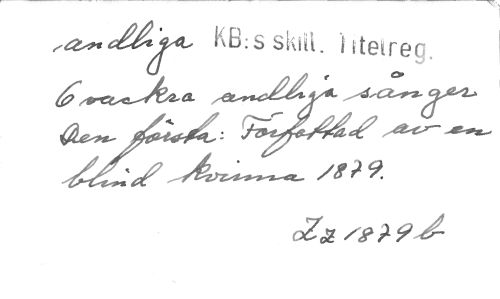 andliga KB:s skill. Titelreg.
6 vackra andliga sånger
Den första: Författad av en
blind kvinna 1879.
Zz 1879 b